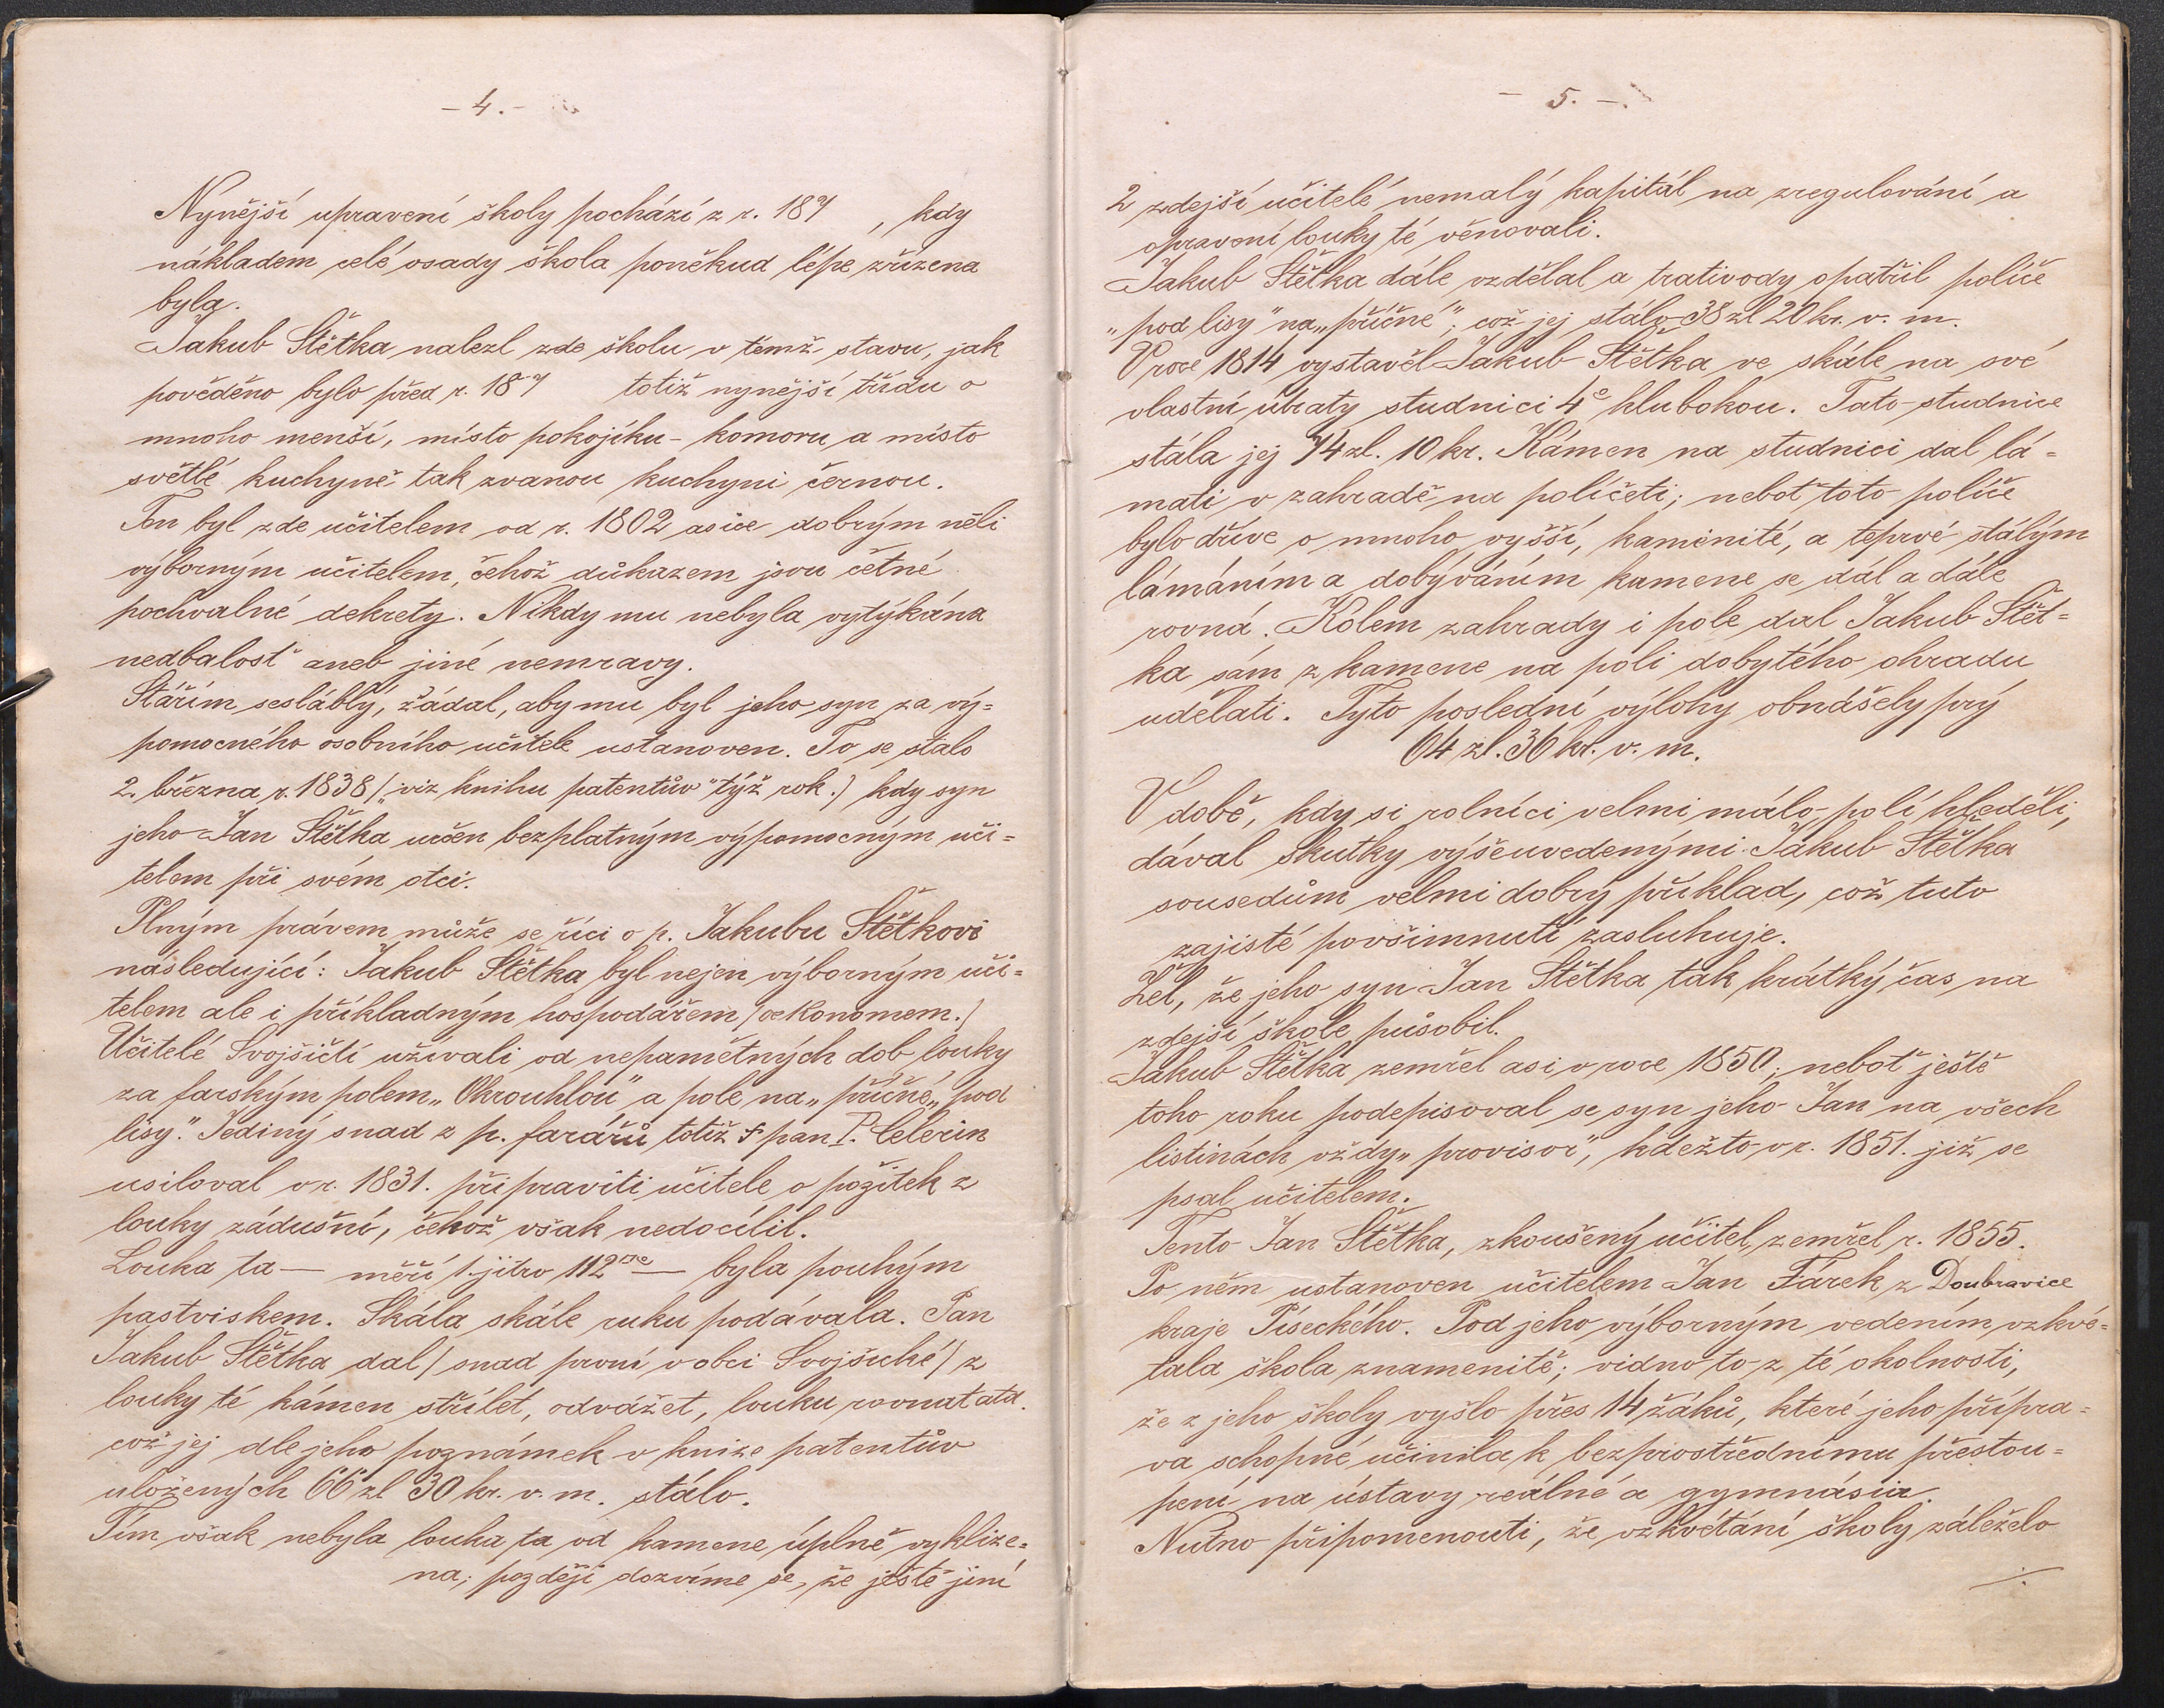 - 4. -
Nynější upravení školy pochází z r. 187 , kdy
nákladem celé osady škola poněkud lépe zřízena
byla.
Jakub Štětka nalezl zde školu v témž stavu, jak
pověděno bylo před r. 187 totiž nynější třídu o
mnoho menší, místo pokojíku - komoru a místo
světlé kuchyně tak zvanou kuchyni černou.
Ten byl zde učitelem od r. 1802 a sice dobrým něli
výborným učitelem, čehož důkazem jsou četné
pochvalné dekrety. Nikdy mu nebyla vytýkána
nedbalosť aneb jiné nemravy.
Stářím sesláblý, žádal, aby mu byl jeho syn za vý=
pomocného osobního učitele ustanoven. To se stalo
2. března r. 1838 (viz „knihu patentův" týž rok.) kdy syn
jeho Jan Štětka určen bezplatným výpomocným uči=
telem při svém otci.
Plným právem může se říci o p. Jakubu Štětkovi
následující: Jakub Štětka byl nejen výborným uči=
telem ale i příkladným hospodářem (oekonomem.)
Učitelé Svojšičtí užívali od nepamětných dob louky
za farským polem „Okrouhlou" a pole na „příčné„ pod
lisy." Jediný snad z p. farářů totiž † pan P. Celerin
usiloval v r. 1831. připraviti učitele o požitek z
louky zádušní, čehož však nedocílil.
Louka ta — měří 1. jitro 112 — byla pouhým
pastviskem. Skála skále ruku podávala. Pan
Jakub Štětka dal (snad první v obci Svojšické) z
louky té kámen střílet, odvážet, louku rovnat atd.
což jej dle jeho poznámek v knize patentův
uložených 66 zl 30 kr. v. m. stálo.
Tím však nebyla louka ta od kamene úplně vyklize=
na; později dozvíme se, že ještě jiní
- 5. -
2 zdejší učitelé nemalý kapitál na zregulování a
opravení louky té věnovali.
Jakub Štětka dále vzdělal a trativody opatřil políče
„pod lisy" na „příčné"; což jej stálo 38 zl 20 kr. v. m.
V roce 1814 vystavěl Jakub Štětka ve skále na své
vlastní útraty studnici 4° hlubokou. Tato studnice
stála jej 74 zl. 10 kr. Kámen na studnici dal lá=
mati v zahradě na políčeti; neboť toto políče
bylo dříve o mnoho vyšší, kamenité, a teprvé stálým
lámáním a dobýváním kamene se dál a dále
rovná. Kolem zahrady i pole dal Jakub Štět=
ka sám z kamene na poli dobytého ohradu
udělati. Tyto poslední výlohy obnášely prý
64 zl. 36 kr. v. m.
V době, kdy si rolníci velmi málo polí hleděli,
dával skutky výšeuvedenými Jakub Štětka
sousedům velmi dobrý příklad, což tuto
zajisté povšimnutí zasluhuje.
Žel, že jeho syn Jan Štětka tak krátký čas na
zdejší škole působil.
Jakub Štětka zemřel asi v roce 1850; neboť ještě
toho roku podepisoval se syn jeho Jan na všech
listinách vždy „provisor", kdežto v r. 1851. již se
psal učitelem.
Tento Jan Štětka, zkoušený učitel, zemřel r. 1855.
Po něm ustanoven učitelem Jan Fárek z Doubravice
kraje Píseckého. Pod jeho výborným vedením vzkvé=
tala škola znamenitě; vidno to z té okolnosti,
že z jeho školy vyšlo přes 14 žáků, které jeho přípra=
va schopné učinila k bezprostřednímu přestou=
pení na ústavy reálné a gymnásia.
Nutno připomenouti, že vzkvétání školy záleželo
./.